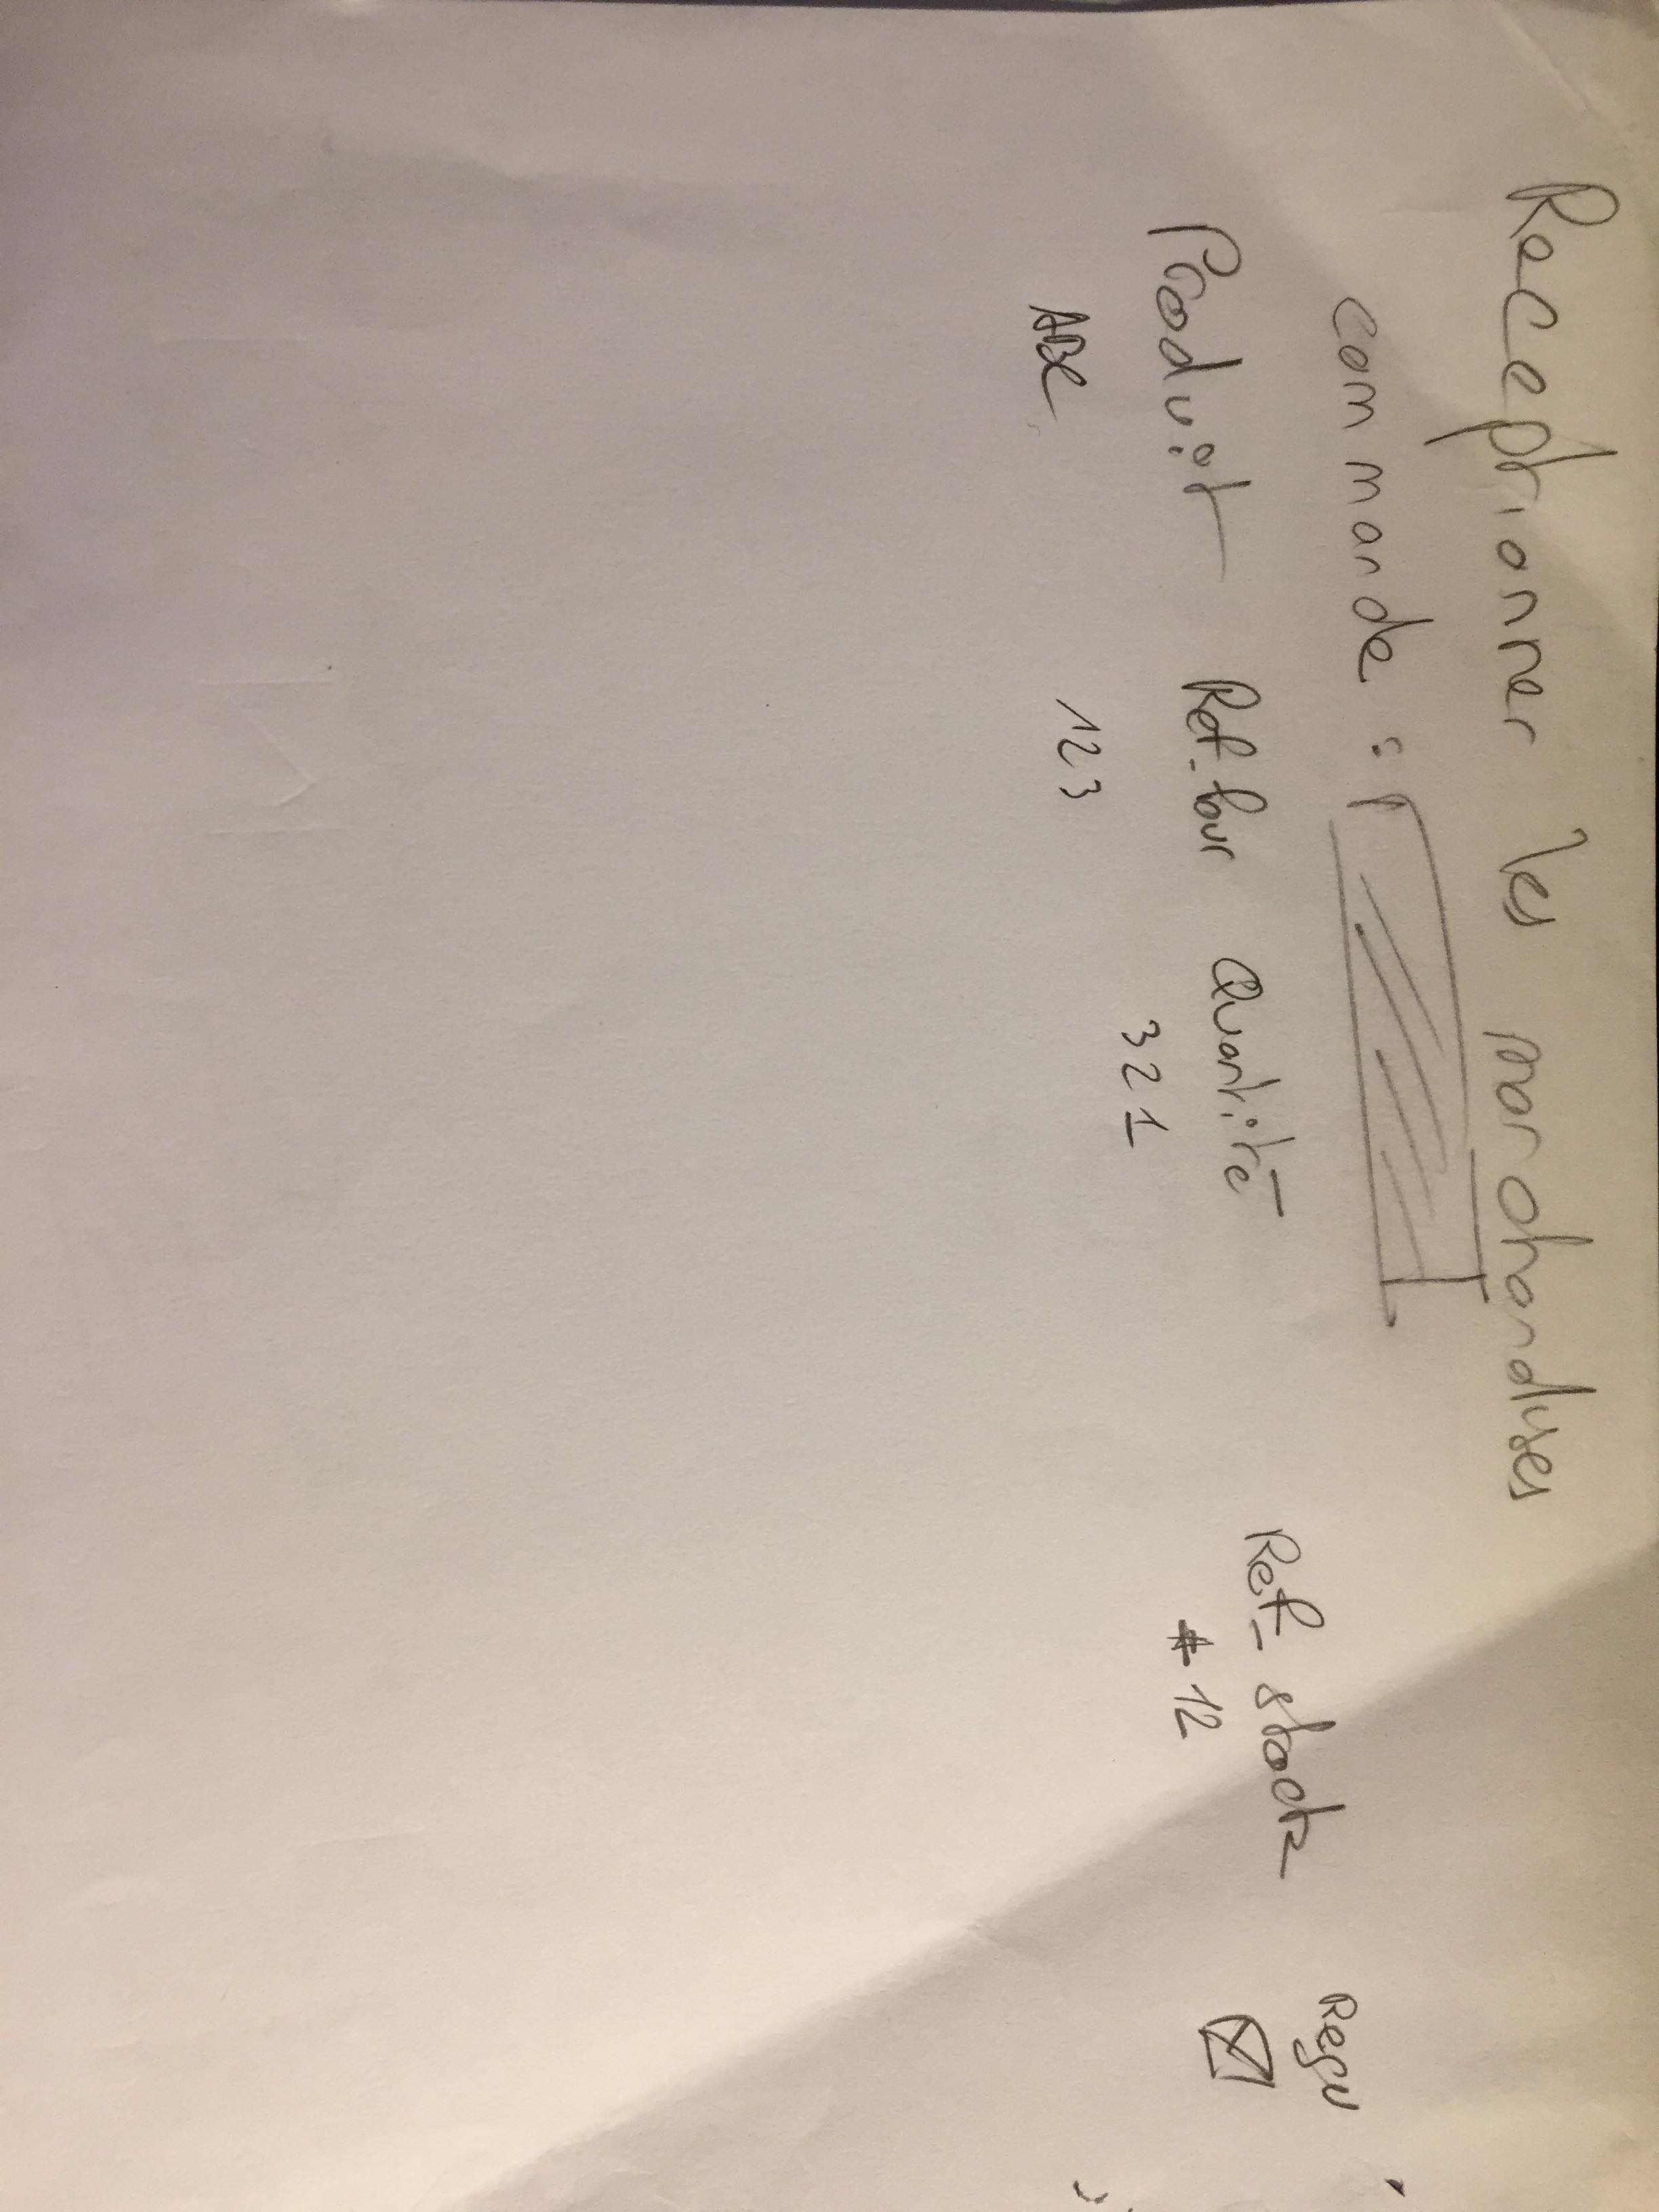 Receptionner les marchandises
commande :
Produit Ref_four Quantité Ref_stock Reçu
ABC 123 321 #12